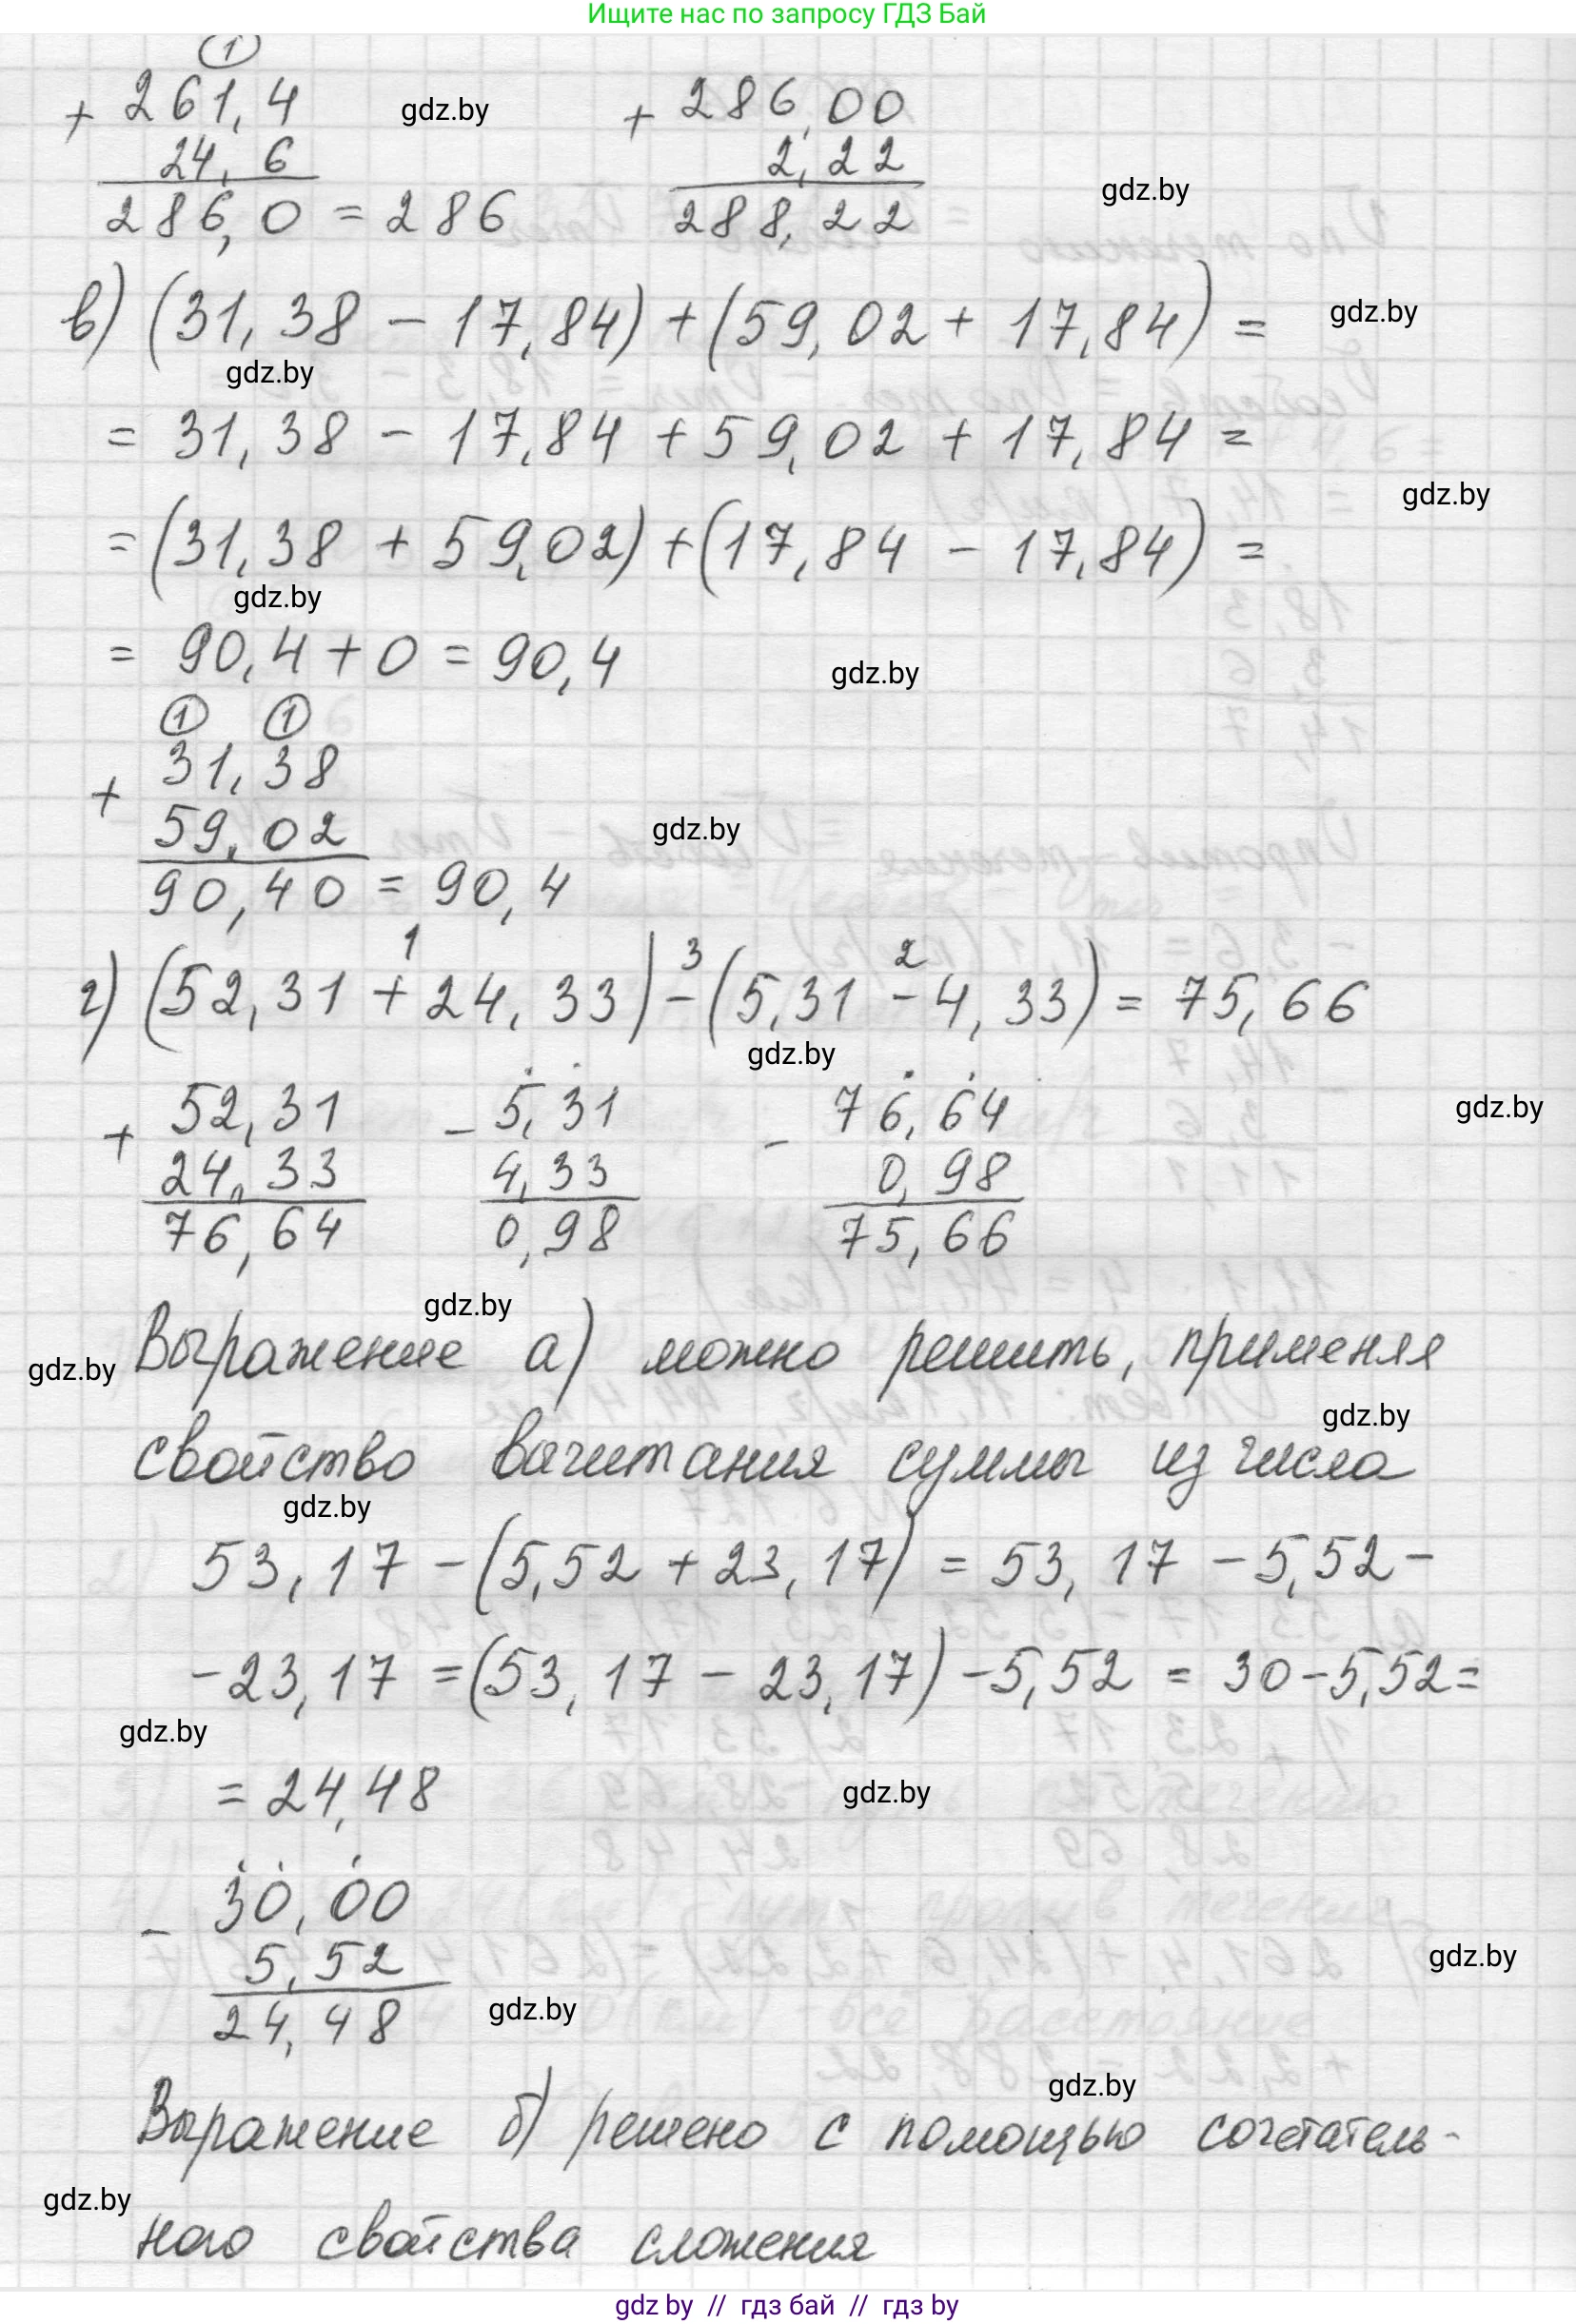 Ищите нас по запросу ГДЗ Бай
1
+ 261,4 gdz.by + 286,00
24,6 2,22 gdz.by
286,0 = 286 288,22
в) (31,38 - 17,84) + (59,02 + 17,84) = gdz.by
gdz.by
= 31,38 - 17,84 + 59,02 + 17,84 =
gdz.by
= (31,38 + 59,02) + (17,84 - 17,84) =
gdz.by
= 90,4 + 0 = 90,4 gdz.by
1 1
+ 31,38
59,02 gdz.by
90,40 = 90,4
1 3 2
г) (52,31 + 24,33) - (5,31 - 4,33) = 75,66
gdz.by
+ 52,31 - 5,31 - 76,64 gdz.by
24,33 4,33 0,98
76,64 0,98 75,66
gdz.by
gdz.by Выражение а) можно решить, применяя
gdz.by
свойство вычитания суммы из числа
gdz.by
53,17 - (5,52 + 23,17) = 53,17 - 5,52 -
- 23,17 = (53,17 - 23,17) - 5,52 = 30 - 5,52 =
gdz.by
= 24,48 gdz.by
- 30,00
5,52 gdz.by
24,48 gdz.by
gdz.by
Выражение б) решено с помощью сочетатель-
gdz.by
ного свойства сложения
gdz.by // гдз бай // гдз by